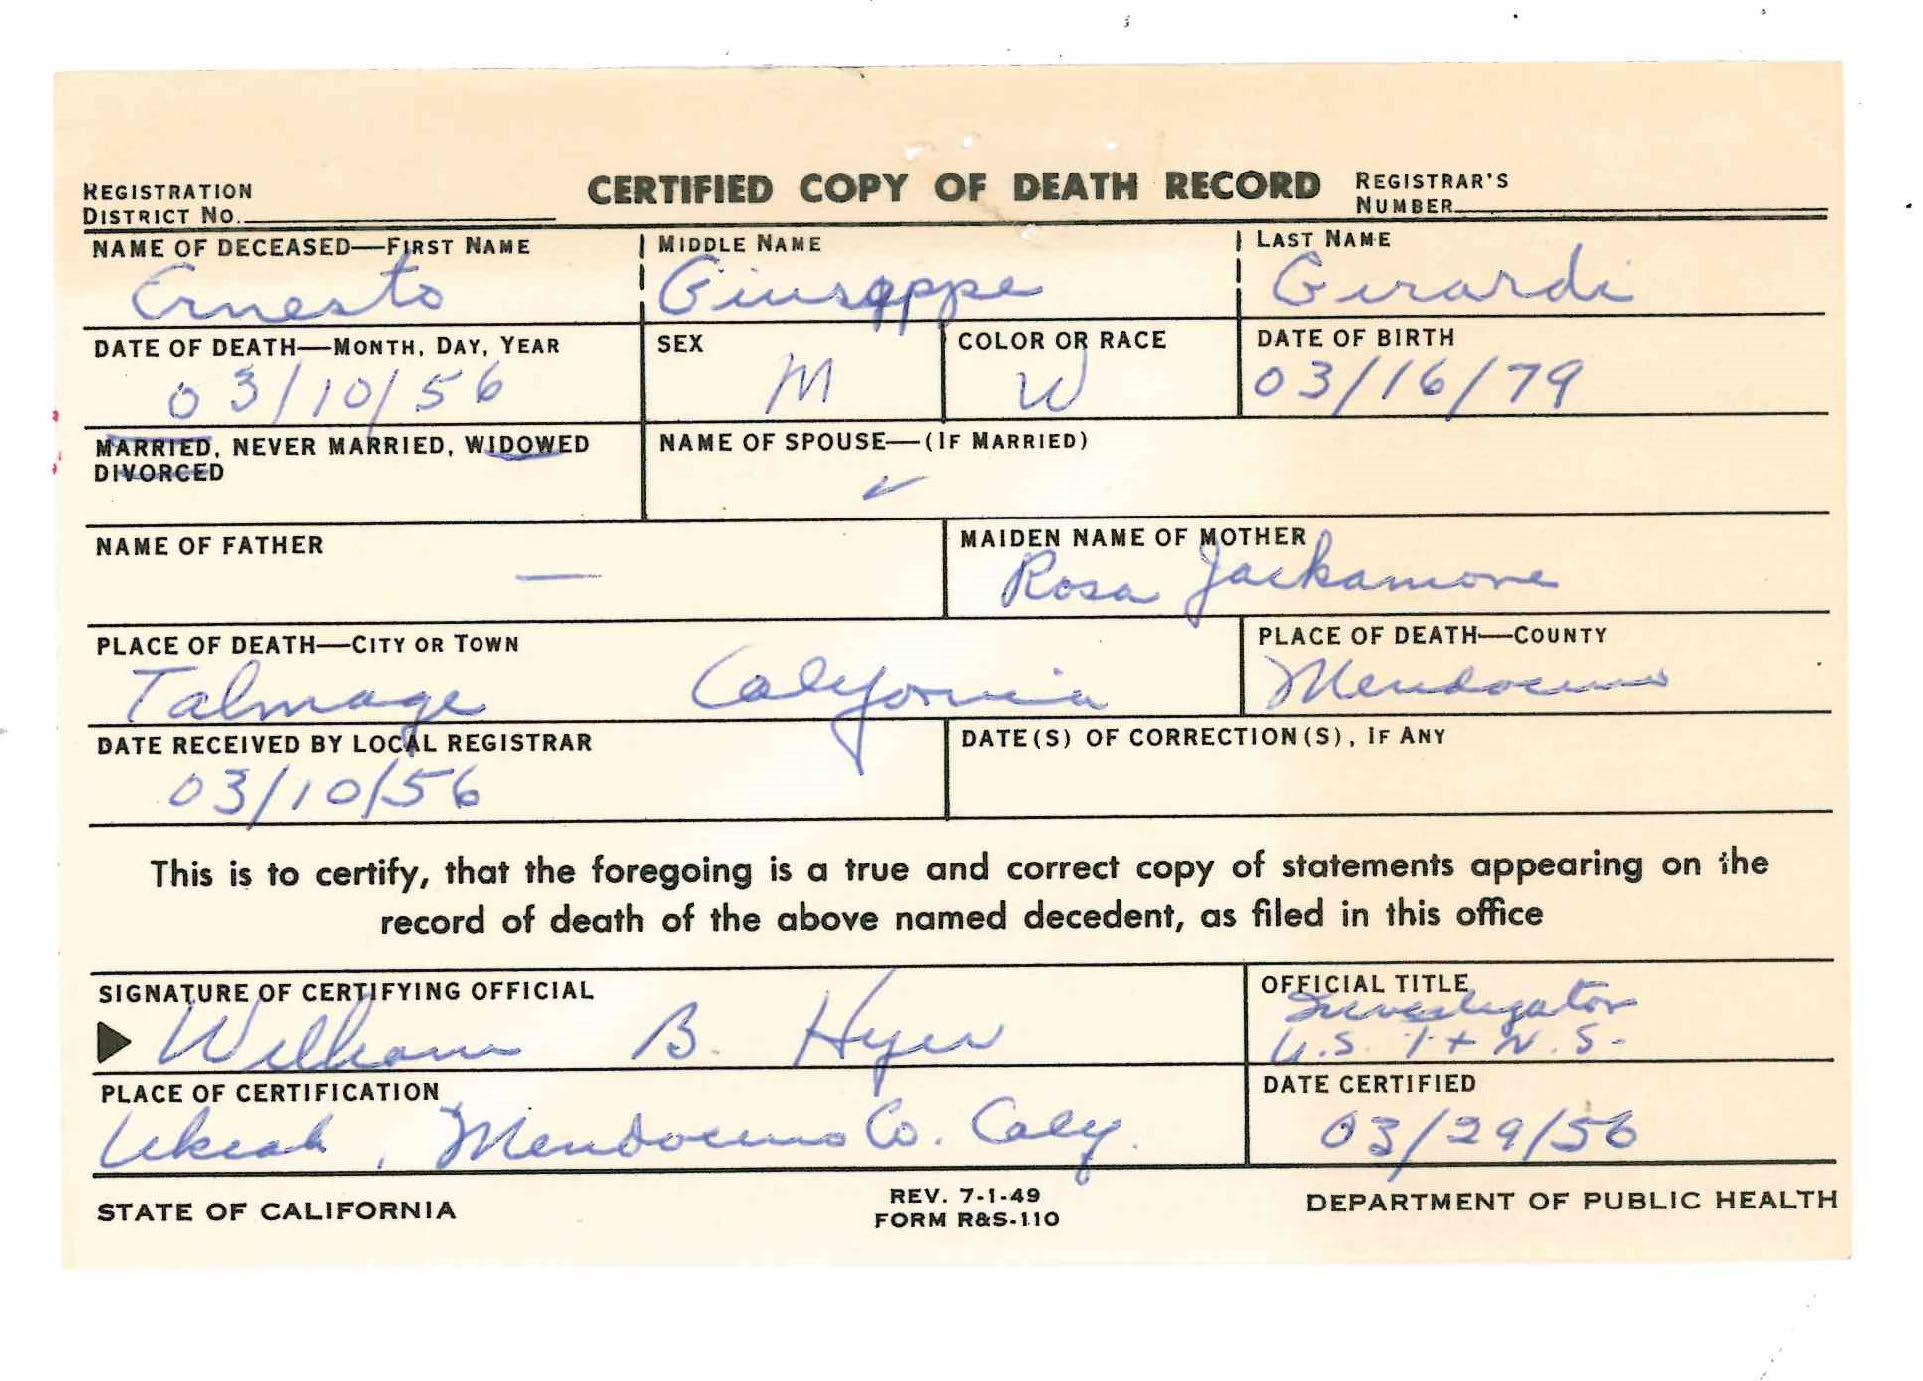 REGISTRATION
DISTRICT NO.
CERTIFIED COPY OF DEATH RECORD
REGISTRAR'S
NUMBER
NAME OF DECEASED—FIRST NAME
MIDDLE NAME
LAST NAME
Ernesto
Giuseppe
Girardi
DATE OF DEATH—MONTH, DAY, YEAR
SEX
COLOR OR RACE
DATE OF BIRTH
03/10/56
M
W
03/16/79
MARRIED, NEVER MARRIED, WIDOWED
DIVORCED
NAME OF SPOUSE—(IF MARRIED)
NAME OF FATHER
MAIDEN NAME OF MOTHER
—
Rosa Jackamore
PLACE OF DEATH—CITY OR TOWN
PLACE OF DEATH—COUNTY
Talmage California
Mendocino
DATE RECEIVED BY LOCAL REGISTRAR
DATE(S) OF CORRECTION(S), IF ANY
03/10/56
This is to certify, that the foregoing is a true and correct copy of statements appearing on the
record of death of the above named decedent, as filed in this office
SIGNATURE OF CERTIFYING OFFICIAL
OFFICIAL TITLE
William B. Hyer
Investigator
U.S. I + N.S.
PLACE OF CERTIFICATION
DATE CERTIFIED
Ukiah, Mendocino Co. Calif.
03/29/56
STATE OF CALIFORNIA
REV. 7-1-49
FORM R&S-110
DEPARTMENT OF PUBLIC HEALTH